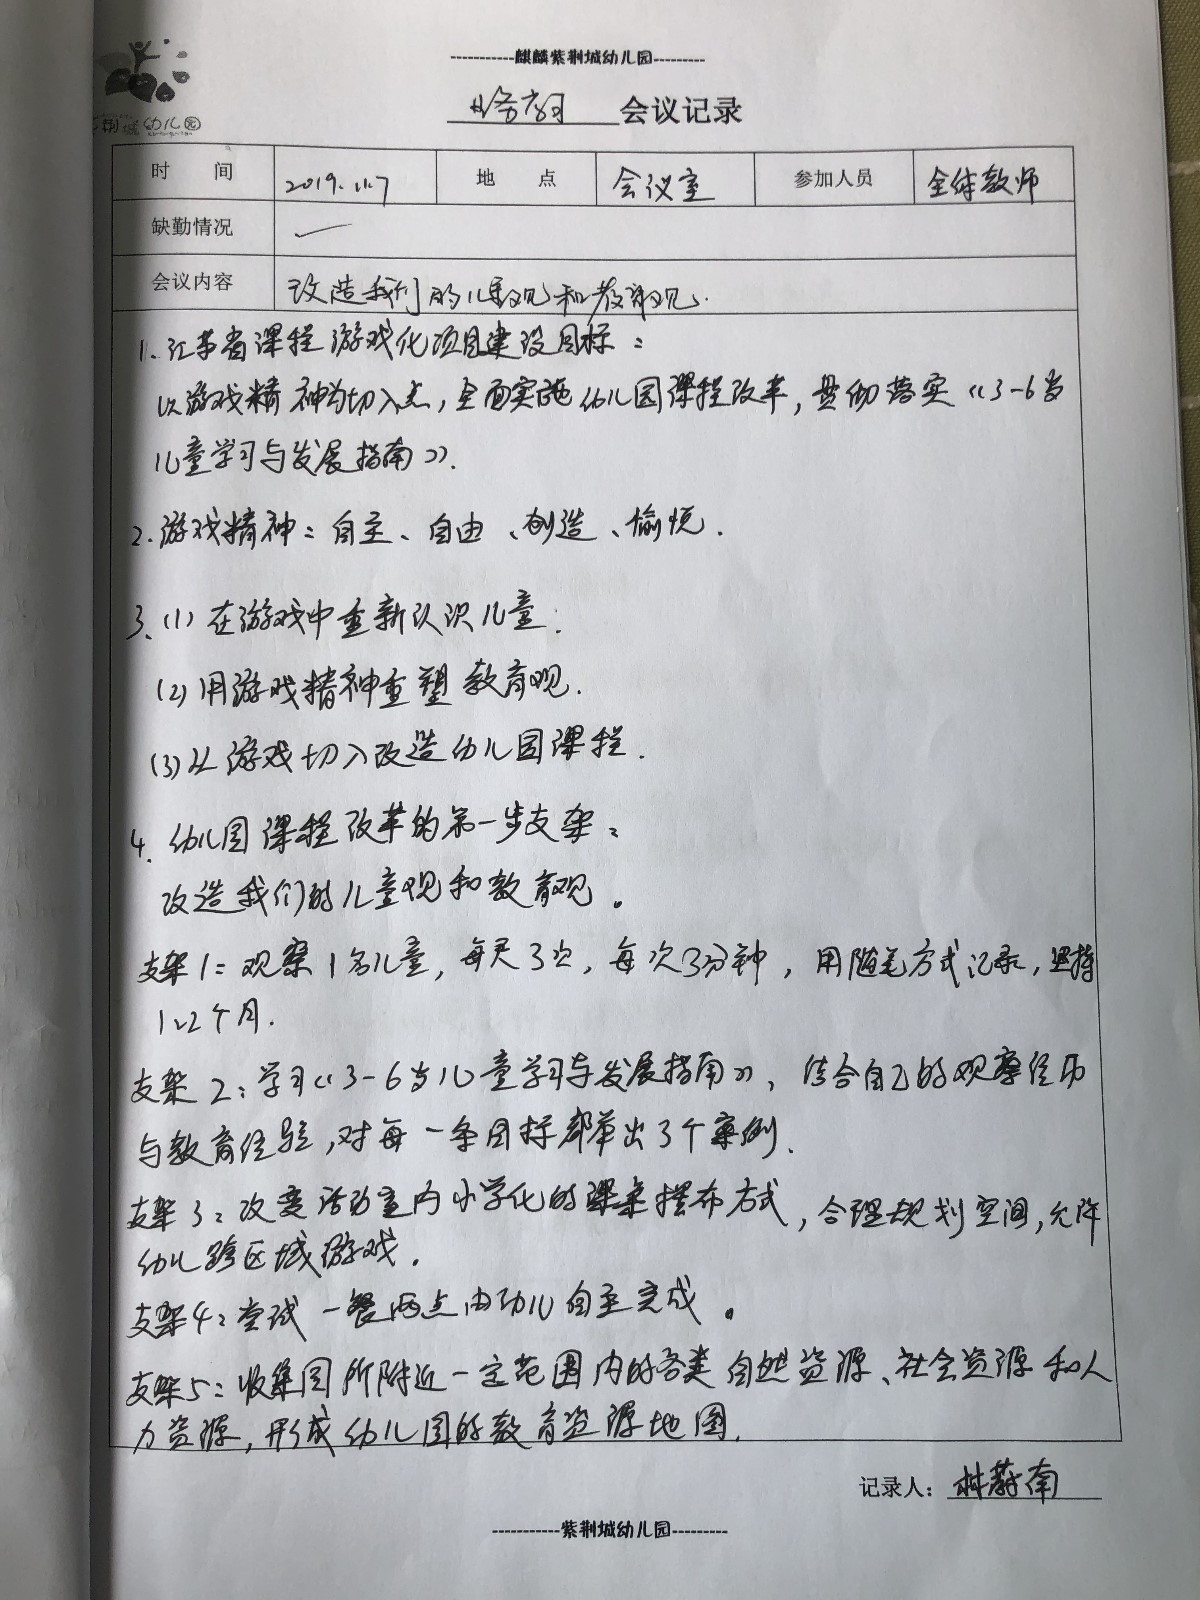 -----------麒麟紫荆城幼儿园---------
会议记录
荆城幼儿园
时 间 2019.11.7 地 点 会议室 参加人员 全体教师
缺勤情况
会议内容 改造我们的儿童观和教育观.
1、江苏省课程游戏化项目建设目标：
以游戏精神为切入点，全面实施幼儿园课程改革，贯彻落实《3-6岁
儿童学习与发展指南》.
2.游戏精神：自主、自由、创造、愉悦.
3、(1)在游戏中重新认识儿童.
(2)用游戏精神重塑教育观.
(3)从游戏切入改造幼儿园课程.
4.幼儿园课程改革的第一步支架：
改造我们的儿童观和教育观。
支架1：观察1名儿童，每天3次，每次3分钟，用随笔方式记录，坚持
1~2个月.
支架2：学习《3-6岁儿童学习与发展指南》，结合自己的观察经历
与教育经验，对每一条目标都举出3个案例.
支架3：改变活动室内小学化的课桌摆布方式，合理规划空间，允许
幼儿跨区域游戏.
支架4：尝试一餐两点由幼儿自主完成。
支架5：收集园所附近一定范围内的各类自然资源、社会资源和人
力资源，形成幼儿园的教育资源地图.
记录人：林蔚南
------------紫荆城幼儿园----------